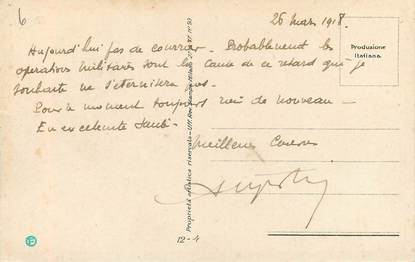 6
26 mars 1918.
Aujourd'hui pas de courrier. Probablement les
operations militaires sont la cause de ce retard que je
souhaite ne s'eternisera pas.
Pour le moment toujours rien de nouveau —
En excellente santé.
Meilleurs
Produzione
Italiana
Proprietà artistica riservata
12-4